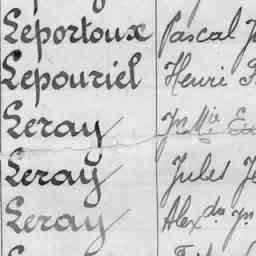 Leportoux Pascal
Lepouriel Henri
Leray Jn Mie
Leray Jules
Leray Alexdre Jn